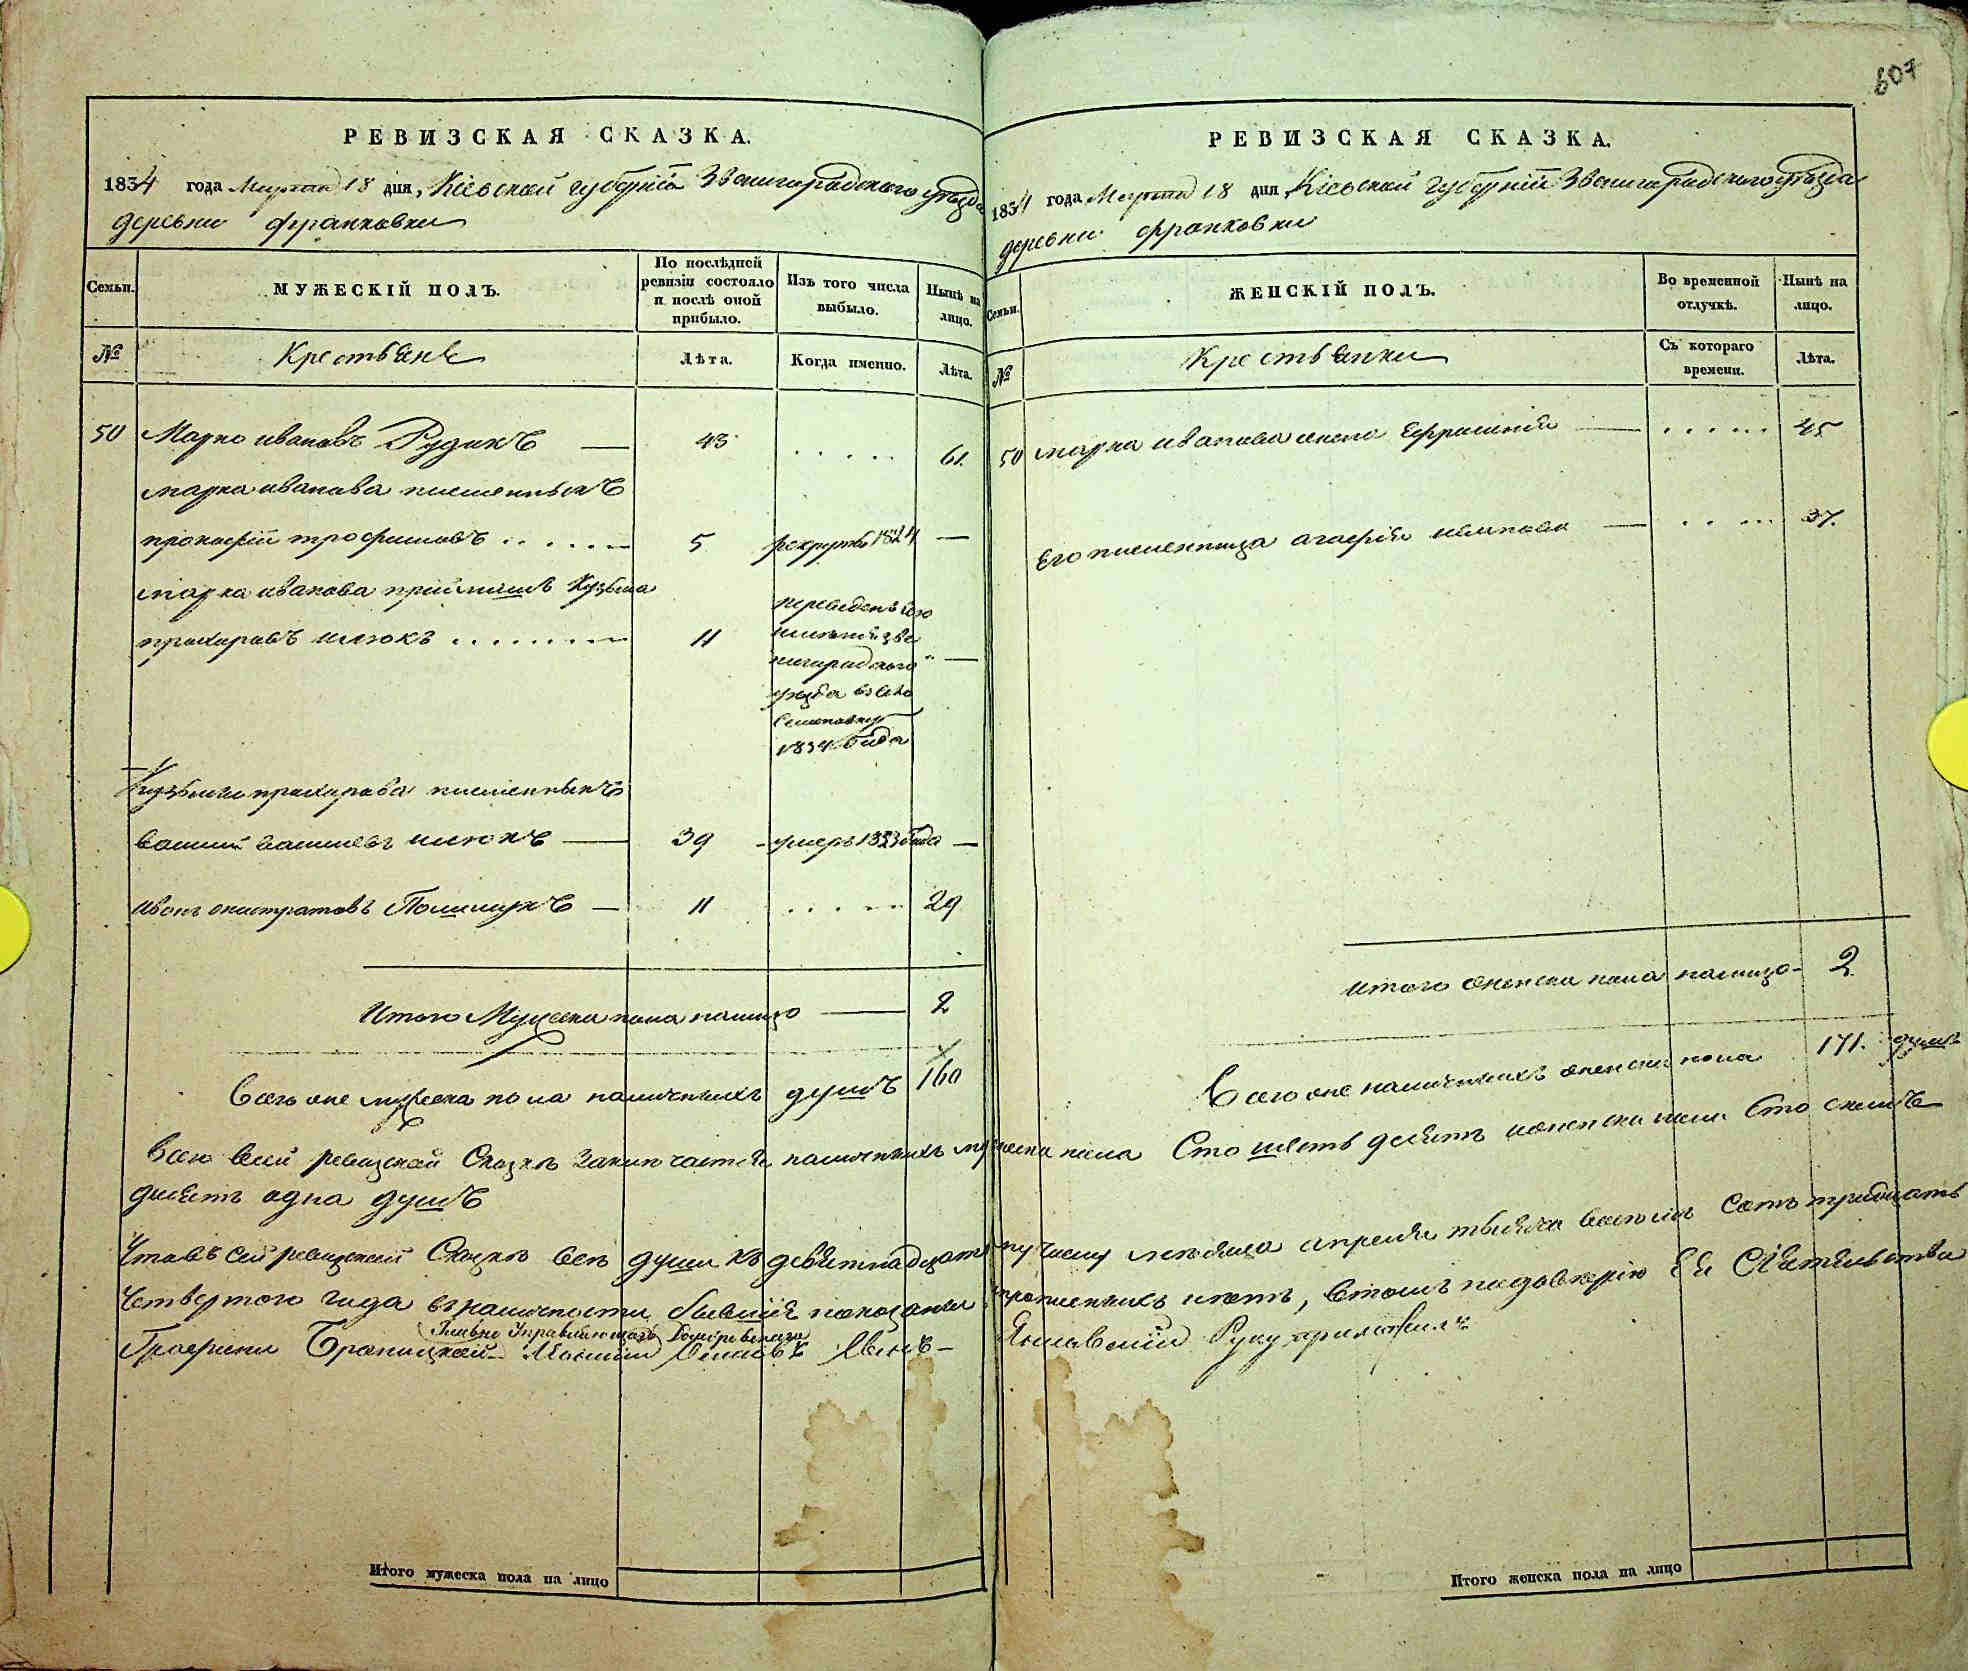 607
РЕВИЗСКАЯ СКАЗКА.
1834 года Марта 18 дня, Кіевской губерніи Звенигородского уѣзда
деревни франковки
Семьи.
МУЖЕСКІЙ ПОЛЪ.
По послѣдней ревизіи состояло и послѣ оной прибыло.
Изъ того числа выбыло.
Нынѣ на лицо.
№
Крестьяне
Лѣта.
Когда именно.
Лѣта.
50 Марко ивановъ Рудикъ — 43 ..... 61.
марка иванова племенникъ
прокофій трофимовъ ...... 5 рекрутъ 1824 —
марка иванова приймишъ Кузьма
прохоровъ ........ 11
переведенъ
уѣзда
1834 года
Кузьмы прохорова племенникъ
39 умеръ 1833 года —
иванъ Полищукъ — 11 ..... 29
Итого Мужеска пола налицо — 2
Всего же мужеска пола наличныхъ душъ 160
РЕВИЗСКАЯ СКАЗКА.
1834 года Марта 18 дня Кіевской губерній Звенигородского уѣзда
деревни франковки
Семьи.
ЖЕНСКІЙ ПОЛЪ.
Во временной отлучкѣ.
Нынѣ на лицо.
№
Крестьянки
Съ котораго времени.
Лѣта.
50 марка иванова жена Ефросинія — ...... 45
Его племенница агафія — ..... 37.
итого женска пола налицо - 2
Всего же наличныхъ женска пола 171. душъ
Всего всей ревизской Сказкѣ заключается наличныхъ мужеска пола Сто шесть десятъ женска пола Сто семь
десятъ одна душъ
Что въ сей ревизской Сказкѣ всѣ души къ девятнадцатому числу мѣсяца апреля тысяча восемь сотъ тридцать
четвертого года въ наличности бывшія показаны и нѣтъ, Въ томъ по довѣрію Ея Сіятельства
Графини Браницкой Главно Управляющій Руку приложилъ
Итого мужеска пола на лицо
Итого женска пола на лицо